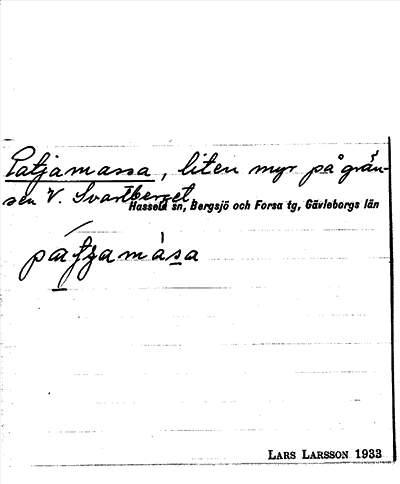 Patjamassa, liten myr på grän-
sen V. Svartberget.
Hassela sn, Bergsjö och Forsa tg, Gävleborgs län
LARS LARSSON 1933